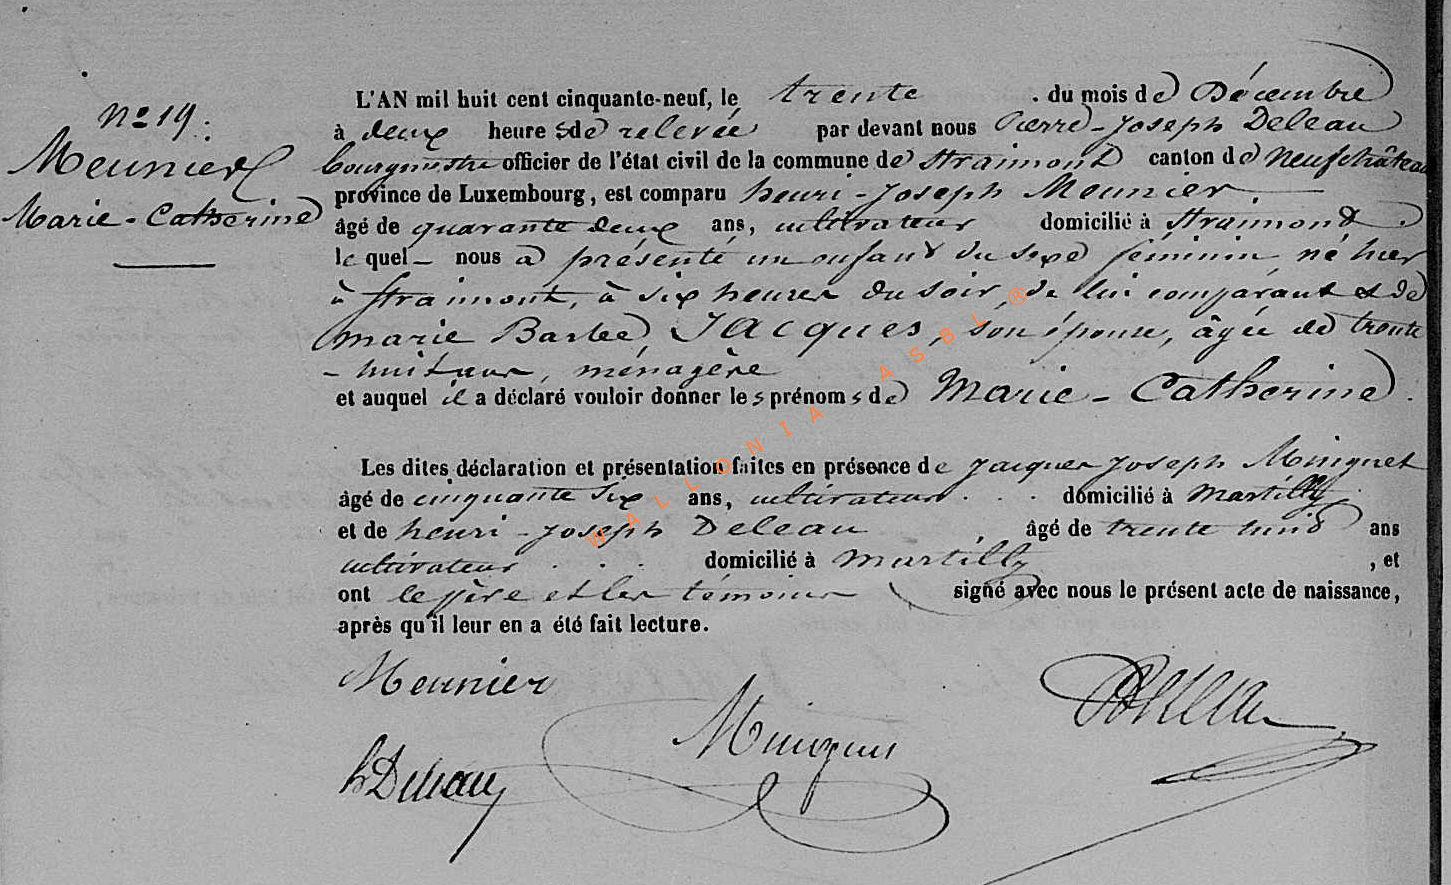 nº 19.
Meunier
Marie-Catherine
L'AN mil huit cent cinquante-neuf, le trente du mois de Décembre
à deux heures de relevée par devant nous Pierre-Joseph Deleau
bourgmestre officier de l'état civil de la commune de Straimont canton de Neufchâteau
province de Luxembourg, est comparu henri-Joseph Meunier
âgé de quarante deux ans, cultivateur domicilié à Straimont
lequel nous a présenté un enfant du sexe féminin né hier
à Straimont, à six heures du soir, de lui comparant & de
marie Barbe JACques, son épouse, âgée de trente
-huit ans, ménagère
et auquel il a déclaré vouloir donner les prénoms de Marie-Catherine.
Les dites déclaration et présentation faites en présence de Jacques Joseph Minguet
âgé de cinquante six ans, cultivateur domicilié à Martilly
et de henri-Joseph Deleau, âgé de trente huit ans
cultivateur domicilié à Martilly, et
ont le père et les témoins signé avec nous le présent acte de naissance,
après qu'il leur en a été fait lecture.
Meunier
Minguet
Deleau
h Deleau
WALLONIA ASBL ®